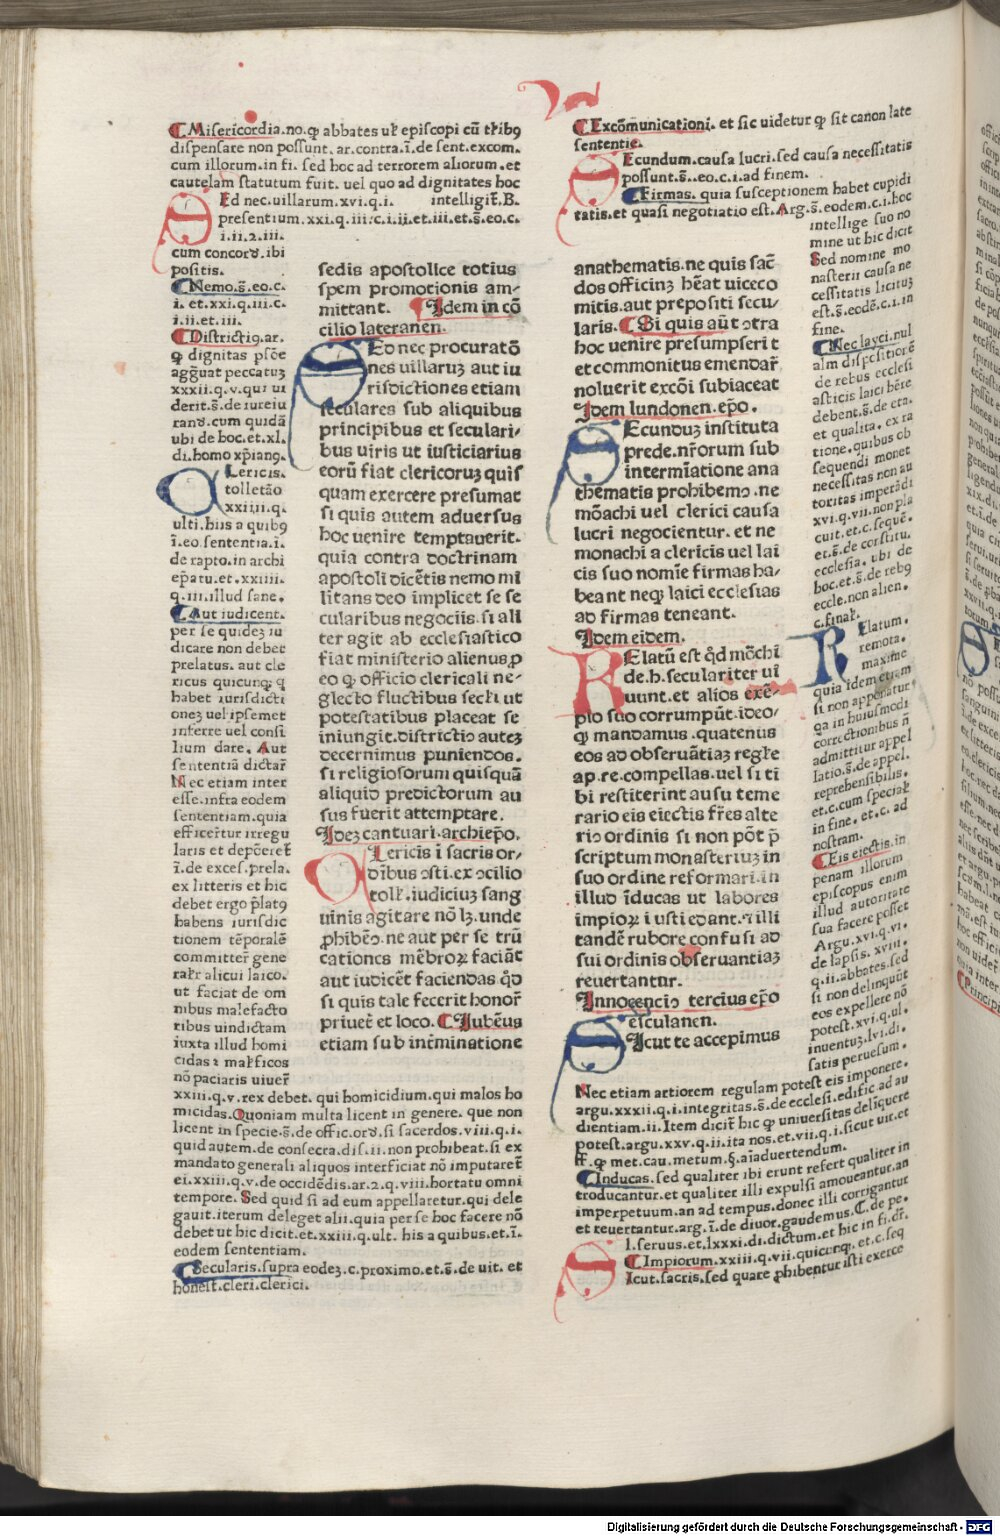 Misericordia.no.ꝙ abbates uel episcopi cū tribꝯ
dispensare non possunt.ar.contra.ī.de sent.excom.
cum illorum.in fi.sed hoc ad terrorem aliorum.et
cautelam statutum fuit.uel quo ad dignitates hoc
Ed nec.uillarum.xvi.q.i. intelligit̄.B.
presentium.xxi.q.iii.c.i.ii.et.iii.et.s̄.eo.c.
i.ii.2.iii.
cum concord.ibi
positis.
Nemo.s̄.eo.c.
i.et.xxi.q.iii.c.
i.ii.et.iii.
Districtiꝯ.ar.
ꝙ dignitas ps̄oē
aggͣuat peccatuꝫ
xxxii.q.v.qui ui
derit.s̄.de iureiu
rand.cum quidā
ubi de hoc.et.xl.
di.homo xp̄ianꝯ.
Lericis.
tolletāo
xxiiii.q.
ulti.hiis a quibꝯ
ī.eo.sententia.ī.
de rapto.in archi
ep̄atu.et.xxiiii.
q.iii.illud sane.
Aut iudicent.
per se quideꝫ iu
dicare non debet
prelatus.aut cle
ricus quicunqꝫ q
habet iurisdicti
oneꝫ uel ipsemet
inferre uel consi
lium dare. Aut
sententiā dictar̄
Nec etiam inter
esse.infra eodem
sententiam.quia
efficeret̄ irregu
laris et depōeret̄
ī.de exces.prela.
ex litteris et hic
debet ergo p̄latꝯ
habens iurisdic
tionem tēporalē
committer̄ gene
raꝉr alicui laico.
ut faciat de om
nibus malefacto
ribus uindictam
iuxta illud homi
cidas 2 maꝉficos
nō paciaris uiuer̄
xxiii.q.v.rex debet. qui homicidium.qui malos ho
micidas.Quoniam multa licent in genere. que non
licent in specie.s̄.de offic.ord.si sacerdos.viii.q.i.
quid autem.de consecra.dis.ii.non prohibeat.si ex
mandato generali aliquos interficiat nō imputaret̄
ei.xxiii.q.v.de occidēdis.ar.2.q.viii.hortatu omni
tempore. Sed quid si ad eum appellaretur.qui dele
gauit.iterum deleget alii.quia per se hoc facere nō
debet ut hic dicit.et.xxiii.q.ult. his a quibus.et.ī.
eodem sententiam.
Secularis.supra eodeꝫ.c.proximo.et.s̄.de uit. et
honest.cleri.clerici.
sedis apostolice totius
spem promotionis am-
mittant. Idem in cō
cilio lateranen.
Ed nec procuratō
nes uillaruꝫ aut iu
risdictiones etiam
seculares sub aliquibus
principibus et seculari-
bus uiris ut iusticiarius
eorū fiat clericoruꝫ quis
quam exercere presumat
si quis autem aduersus
hoc uenire temptauerit.
quia contra doctrinam
apostoli dicētis nemo mi
litans deo implicet se se
cularibus negociis.si ali
ter agit ab ecclesiastico
fiat ministerio alienus.p
eo ꝙ officio clericali ne-
glecto fluctibus secꝉi ut
potestatibus placeat se
iniungit.districtiꝯ auteꝫ
decernimus puniendos.
si religiosorum quisquā
aliquid predictorum au
sus fuerit attemptare.
Ideꝫ cantuari.archiep̄o.
Lericis ī sacris or-
dibus ↄsti.ex ↄcilio
toletꝉ.iudiciuꝫ sang
uinis agitare nō lꝫ.unde
ꝓhibēꝯ.ne aut per se trū
cationes mēbroꝝ faciāt
aut iudicēt faciendas ꝙd
si quis tale fecerit honor̄
priuet̄ et loco. Iubēus
etiam sub int̄minatione
Excōmunicationi. et sic uidetur ꝙ sit canon late
sententie.
Ecundum.causa lucri.sed causa necessitatis
possunt.s̄.eo.c.i.ad finem.
Firmas. quia susceptionem habet cupidi
tatis.et quasi negotiatio est. Arg.s̄.eodem.c.i.hoc
intellige suo no
mine ut hic dicit
Sed nomine mo
nasterii causa ne
cessitatis licituꝫ
est.s̄.eodē.c.i.in
fine.
Nec layci.nul
lam dispositiorē
de rebus ecclesi
asticis laici hēre
debent.s̄.de cra.
et qualita. ex ra
tione.quibus ob
sequendi monet
necessitas non au
toritas imperādi
xvi.q.vii.non pla
cuit.et.c.sequē.
et.s̄.de constitu.
ecclesia. ubi de
hoc.et.s̄.de rebꝯ
eccle.non alien.
c.finaꝉ.
Elatum.
remota.
maxime
quia idem etiam
si non apponatur
qa in huiusmodi
correctionibus n̄
admittitur appel
latio.s̄.de appel.
reprehensibilis.
et.c.cum speciaꝉ
in fine. et.c. ad
nostram.
Eis eiectis.in
penam illorum
episcopus enim
illud autoritate
sua facere posset
Argu.xvi.q.vi.
de lapsis. xviii.
q.ii.abbates.sed
si non delinquūt
eos expellere nō
potest.xvi.q.ul.
inuentuꝫ.lvi.di.
satis peruersum.
anathematis.ne quis sac̄
dos officiuꝫ hēat uiceco
mitis.aut prepositi secu-
laris. Si quis aūt ↄtra
hoc uenire presumpserit
et commonitus emendar̄
noluerit excōi subiaceat
Idem lundonen.ep̄o.
Ecunduꝫ instituta
prede.nr̄orum sub
intermīatione ana
thematis prohibemꝯ.ne
mōachi uel clerici causa
lucri negocientur. et ne
monachi a clericis uel lai
cis suo nomīe firmas ha-
beant neqꝫ laici ecclesias
ad firmas teneant.
Idem eidem.
Elatū est ꝙd mōchi
de.h.seculariter ui
uunt.et alios exē-
plo suo corrumpūt.ideo-
ꝙ mandamus.quatenus
eos ad obseruātiaꝫ regꝉe
ap.re.compellas.uel si ti
bi restiterint ausu teme
rario eis eiectis fr̄es alte
riꝯ ordinis si non pōt p̄
scriptum monasteriuꝫ in
suo ordine reformari.in
illud īducas ut labores
impioꝝ iusti edant.⁊ illi
tandē rubore confusi ad
sui ordinis obseruantiaꝫ
reuertantur.
Innocenciꝯ tercius ep̄o
esculanen.
Icut te accepimus
Nec etiam artiorem regulam potest eis imponere.
argu.xxxii.q.i.integritas.s̄.de ecclesi.edific.ad au
dientiam.ii.Item dicit̄ hic ꝙ uniuersitas delīquere
potest.argu.xxv.q.ii.ita nos.et.vii.q.i.sicut uir.et
ff.ꝙ met.cau.metum.§.aīaduertendum.
Inducas.sed qualiter ibi erunt refert qualiter in
troducantur.et qualiter illi expulsi amoueantur.an
imperpetuum.an ad tempus.donec illi corrigantur
et reuertantur.arg.ī.de diuor.gaudemus.C.de pe.
l.seruus.et.lxxxi.di.dictum.et hic in fi.dr̄.
Impiorum.xxiii.q.vii.quicunqꝫ.et.c.seq
Icut.sacris.sed quare ꝓhibentur isti exerce
Digitalisierung gefördert durch die Deutsche Forschungsgemeinschaft - DFG